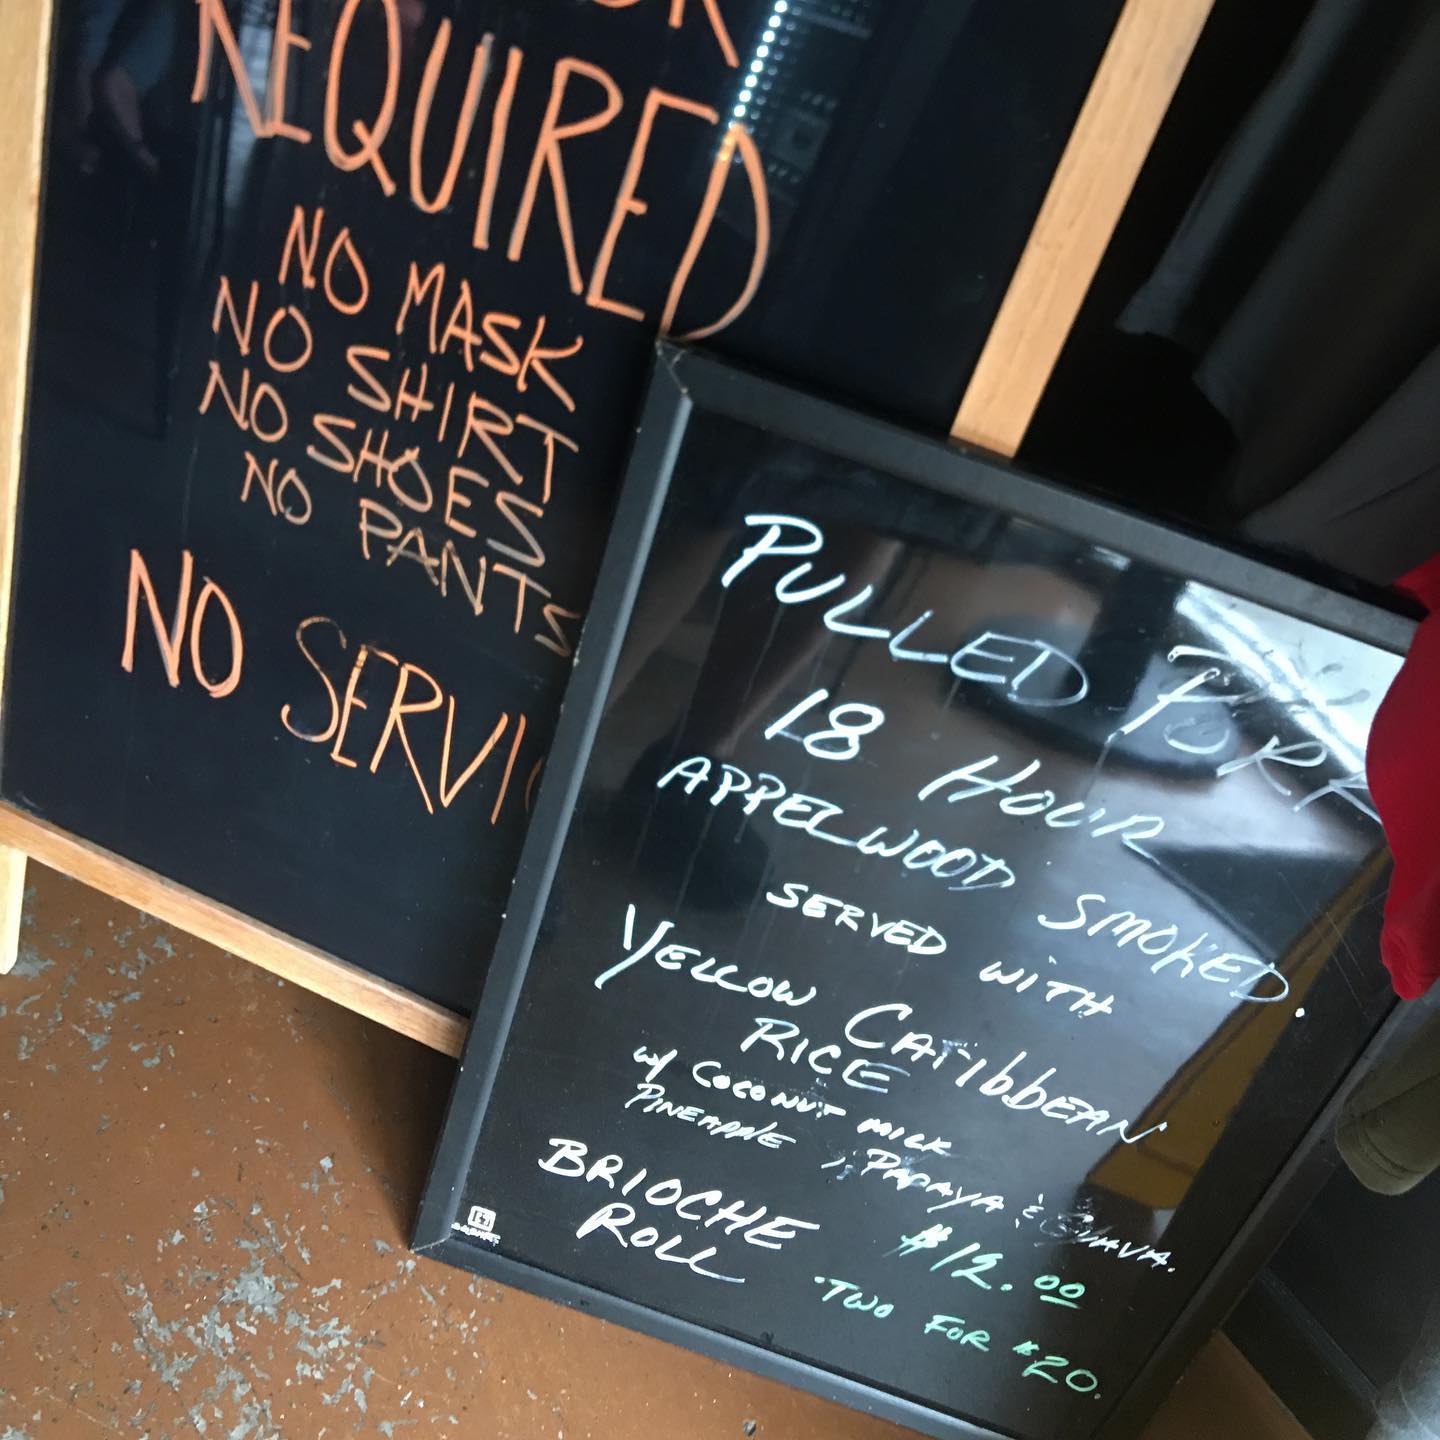 REQUIRED
NO MASK
NO SHIRT
NO SHOES
NO PANTS
NO SERVIC
PULLED PORK
18 HOUR
APPELWOOD SMOKED.
SERVED WITH
YELLOW CARIBBEAN
RICE
W/ COCONUT MILK
PINEAPPLE, PAPAYA & GUAVA.
BRIOCHE
ROLL
$12.00
TWO FOR $20.